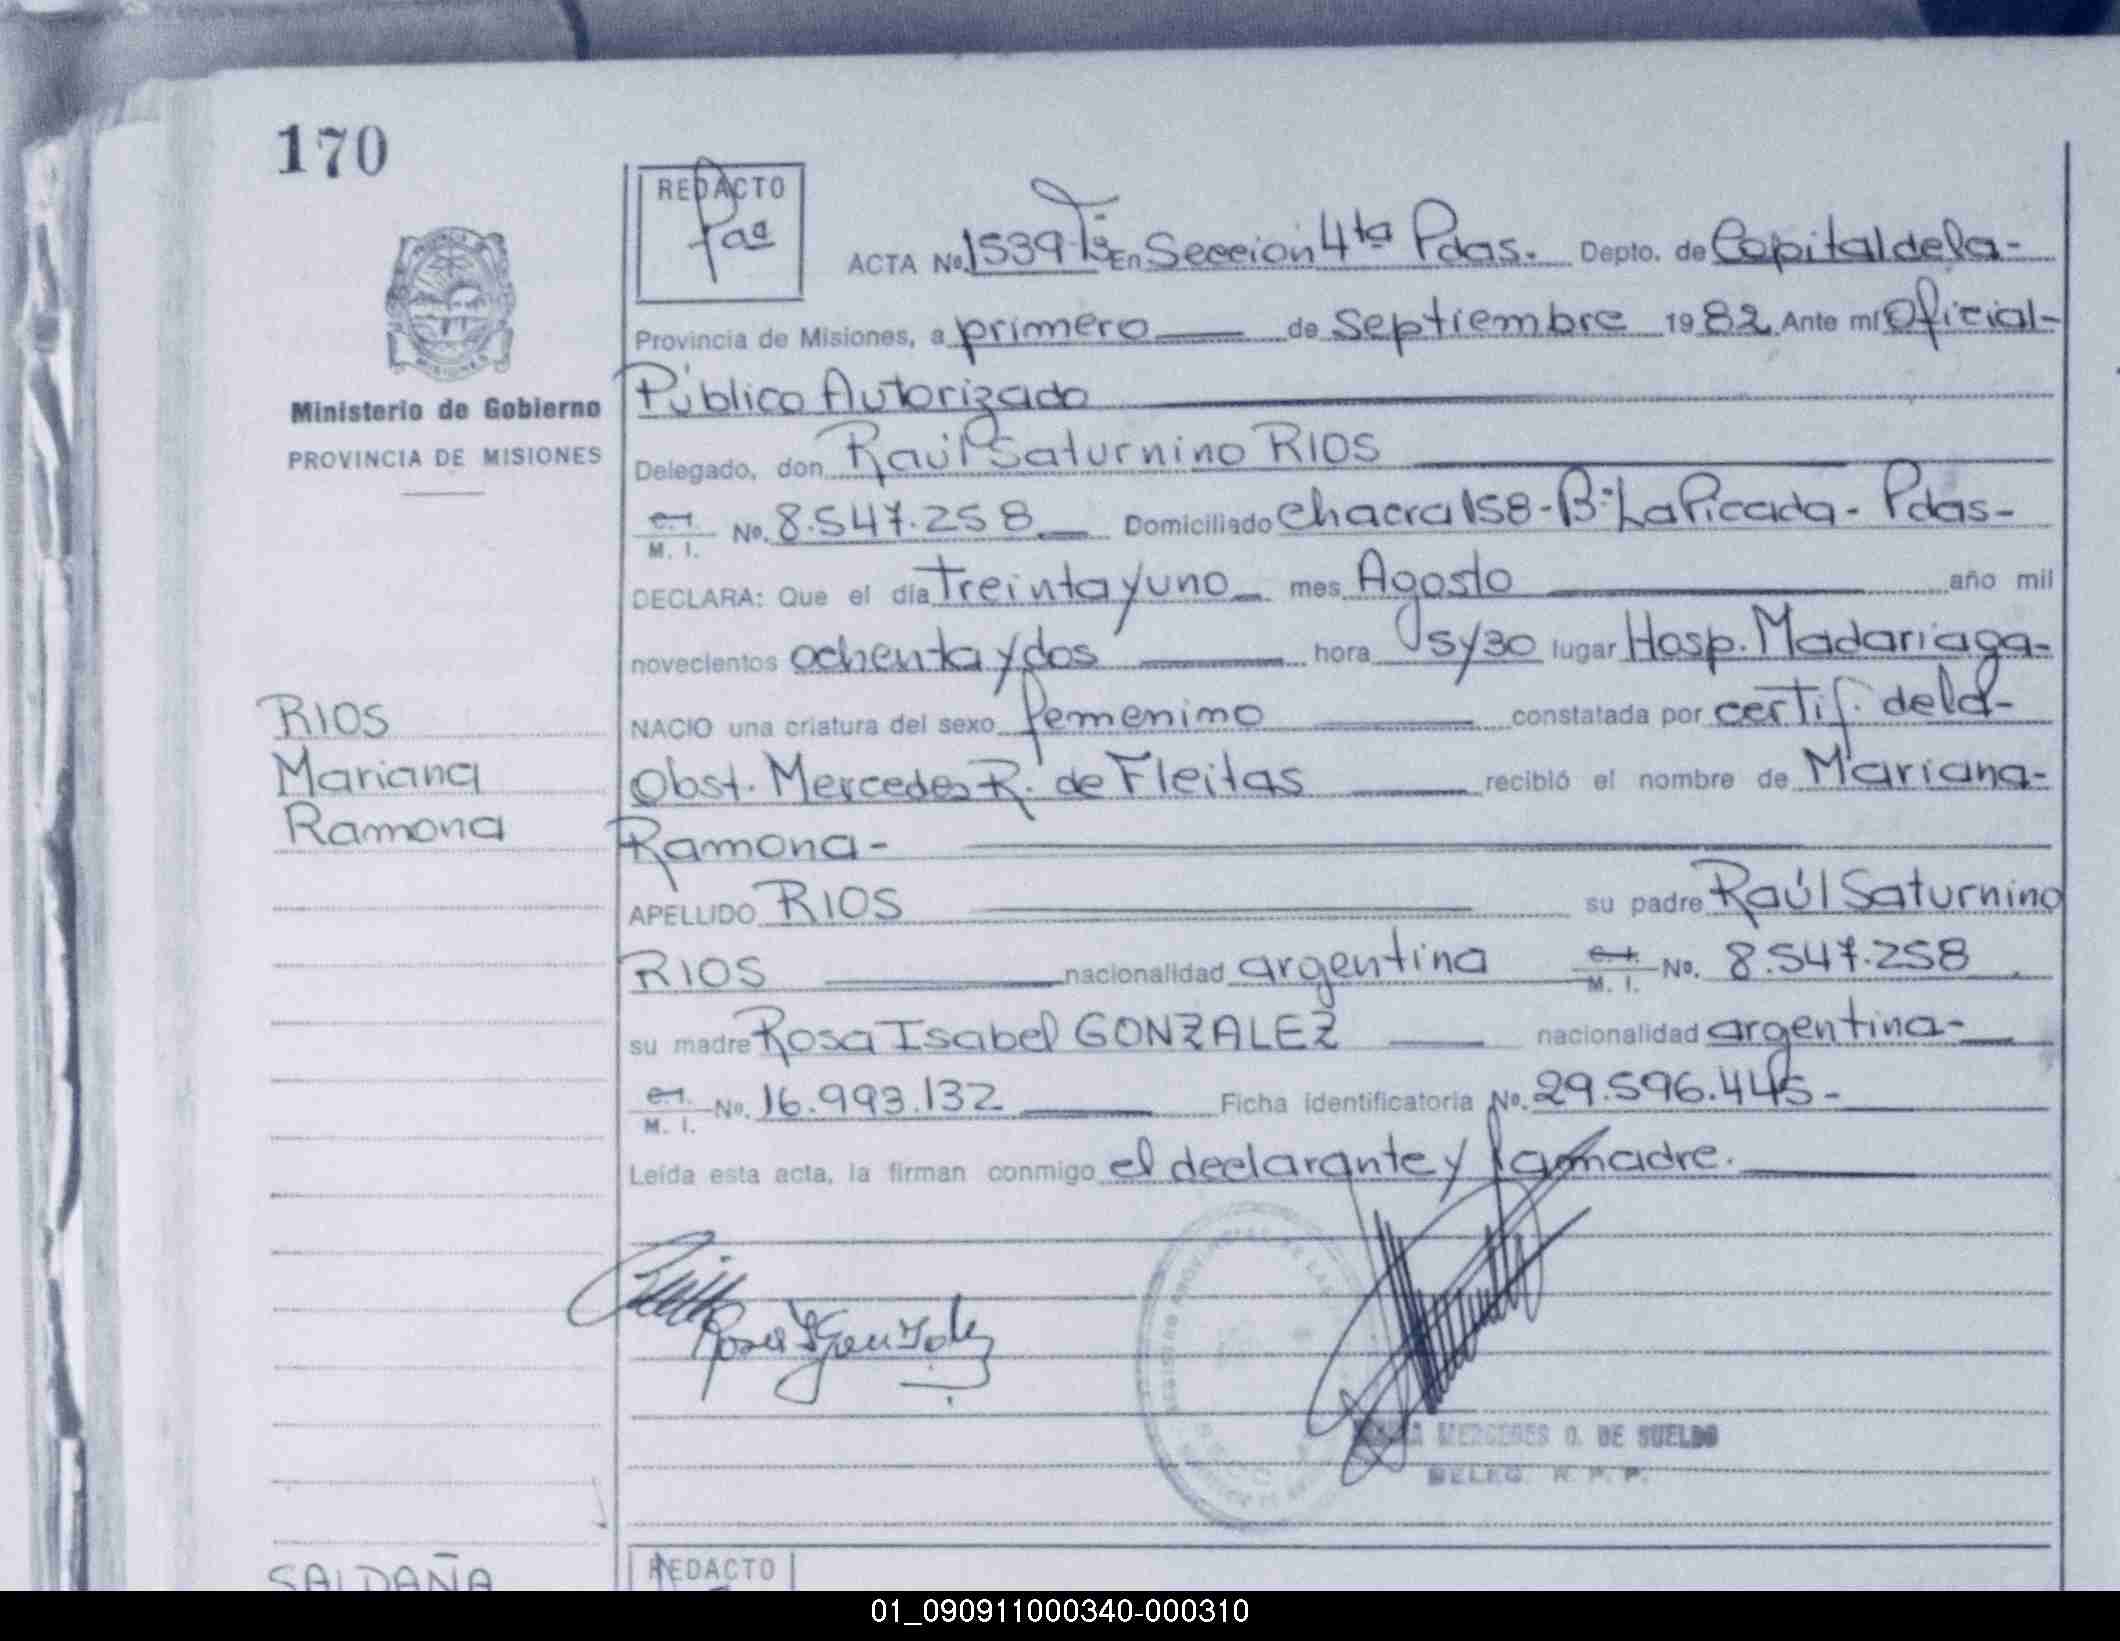 170
REDACTO
Paa
ACTA No. 1539 Tº En Seccion 4ta Pdas. Depto. de Capital de la-
Provincia de Misiones, a primero de Septiembre 1982 Ante mí Oficial-
Ministerio de Gobierno
Público Autorizado
PROVINCIA DE MISIONES
Delegado, don Raúl Saturnino RIOS
C.I. M. I. No. 8.547.258 Domiciliado Chacra 158-Bº La Picada- Pdas-
DECLARA: Que el día Treinta y uno mes Agosto año mil
novecientos ochenta y dos hora 5y30 lugar Hosp. Madariaga-
RIOS
NACIO una criatura del sexo femenino constatada por certif. de la-
Mariana
Obst. Mercedes R. de Fleitas recibió el nombre de Mariana-
Ramona
Ramona-
APELLIDO RIOS su padre Raúl Saturnino
RIOS nacionalidad argentina C.I. M. I. No. 8.547.258
su madre Rosa Isabel GONZALEZ nacionalidad argentina-
C.I. M. I. No. 16.993.132 Ficha identificatoria No. 29.596.445-
Leída esta acta, la firman conmigo el declarante y la madre.
Rosa I Gonzalez
MERCEDES O. DE SUELDO
DELEG. R. P. P.
SALDAÑA
REDACTO
01_090911000340-000310